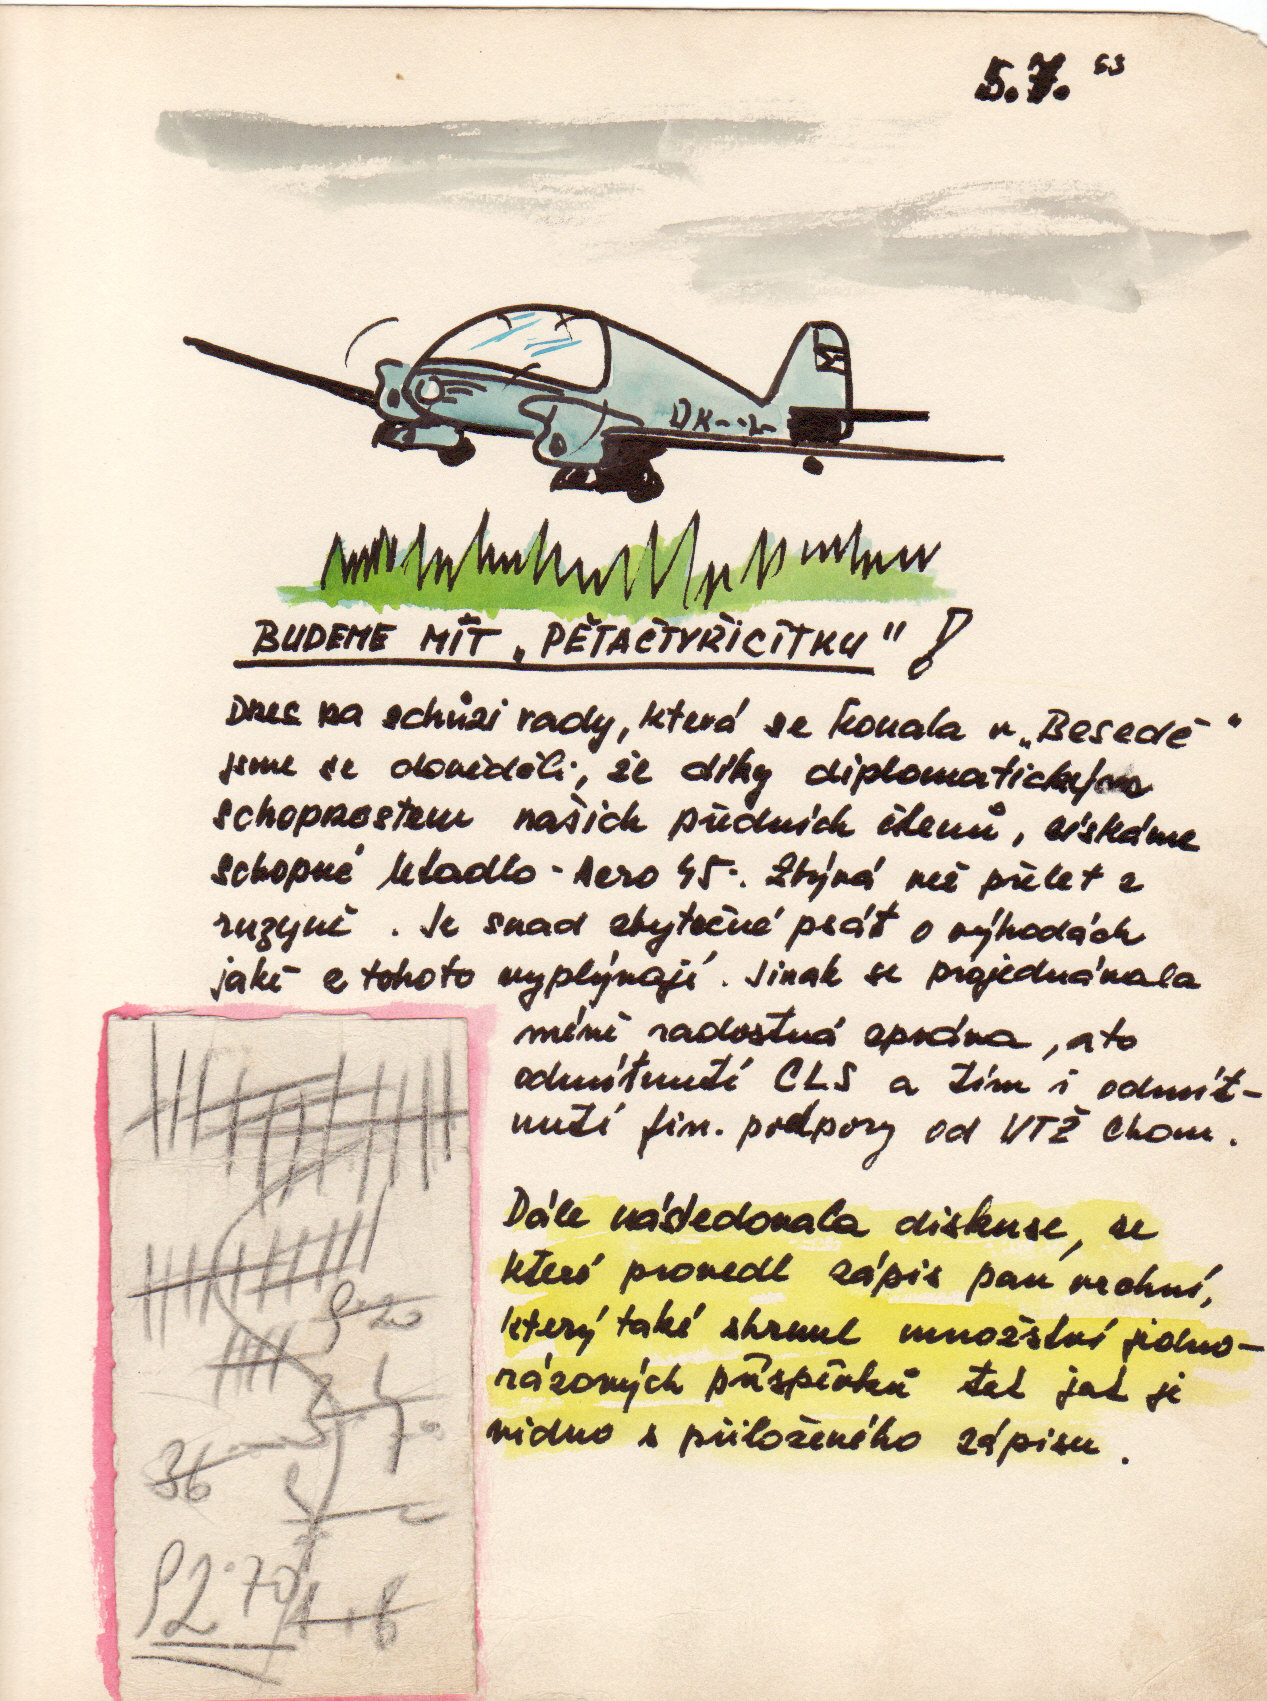 5.7.
OK-
BUDEME MÍT „PĚTAČTYŘICÍTKU" !
Dnes na schůzi rady, která se konala v „Besedě"
jsme se dověděli, že díky diplomatickým
schopnostem našich předních členů, získáme
schopné letadlo - Aero 45. Zbývá než přílet z
ruzyně. Je snad zbytečné psát o výhodách
jaké z tohoto vyplývají. Jinak se projednávala
méně radostná zpráva, a to
odmítnutí CLS a tím i odmít-
nutí fin. podpory od VTŽ Chom.
Dále následovala diskuse, ze
které provedl zápis pan vrchní,
který také shrnul množství jedno-
rázových příspěvků tak jak je
vidno s přiloženého zápisu.
36
92.70